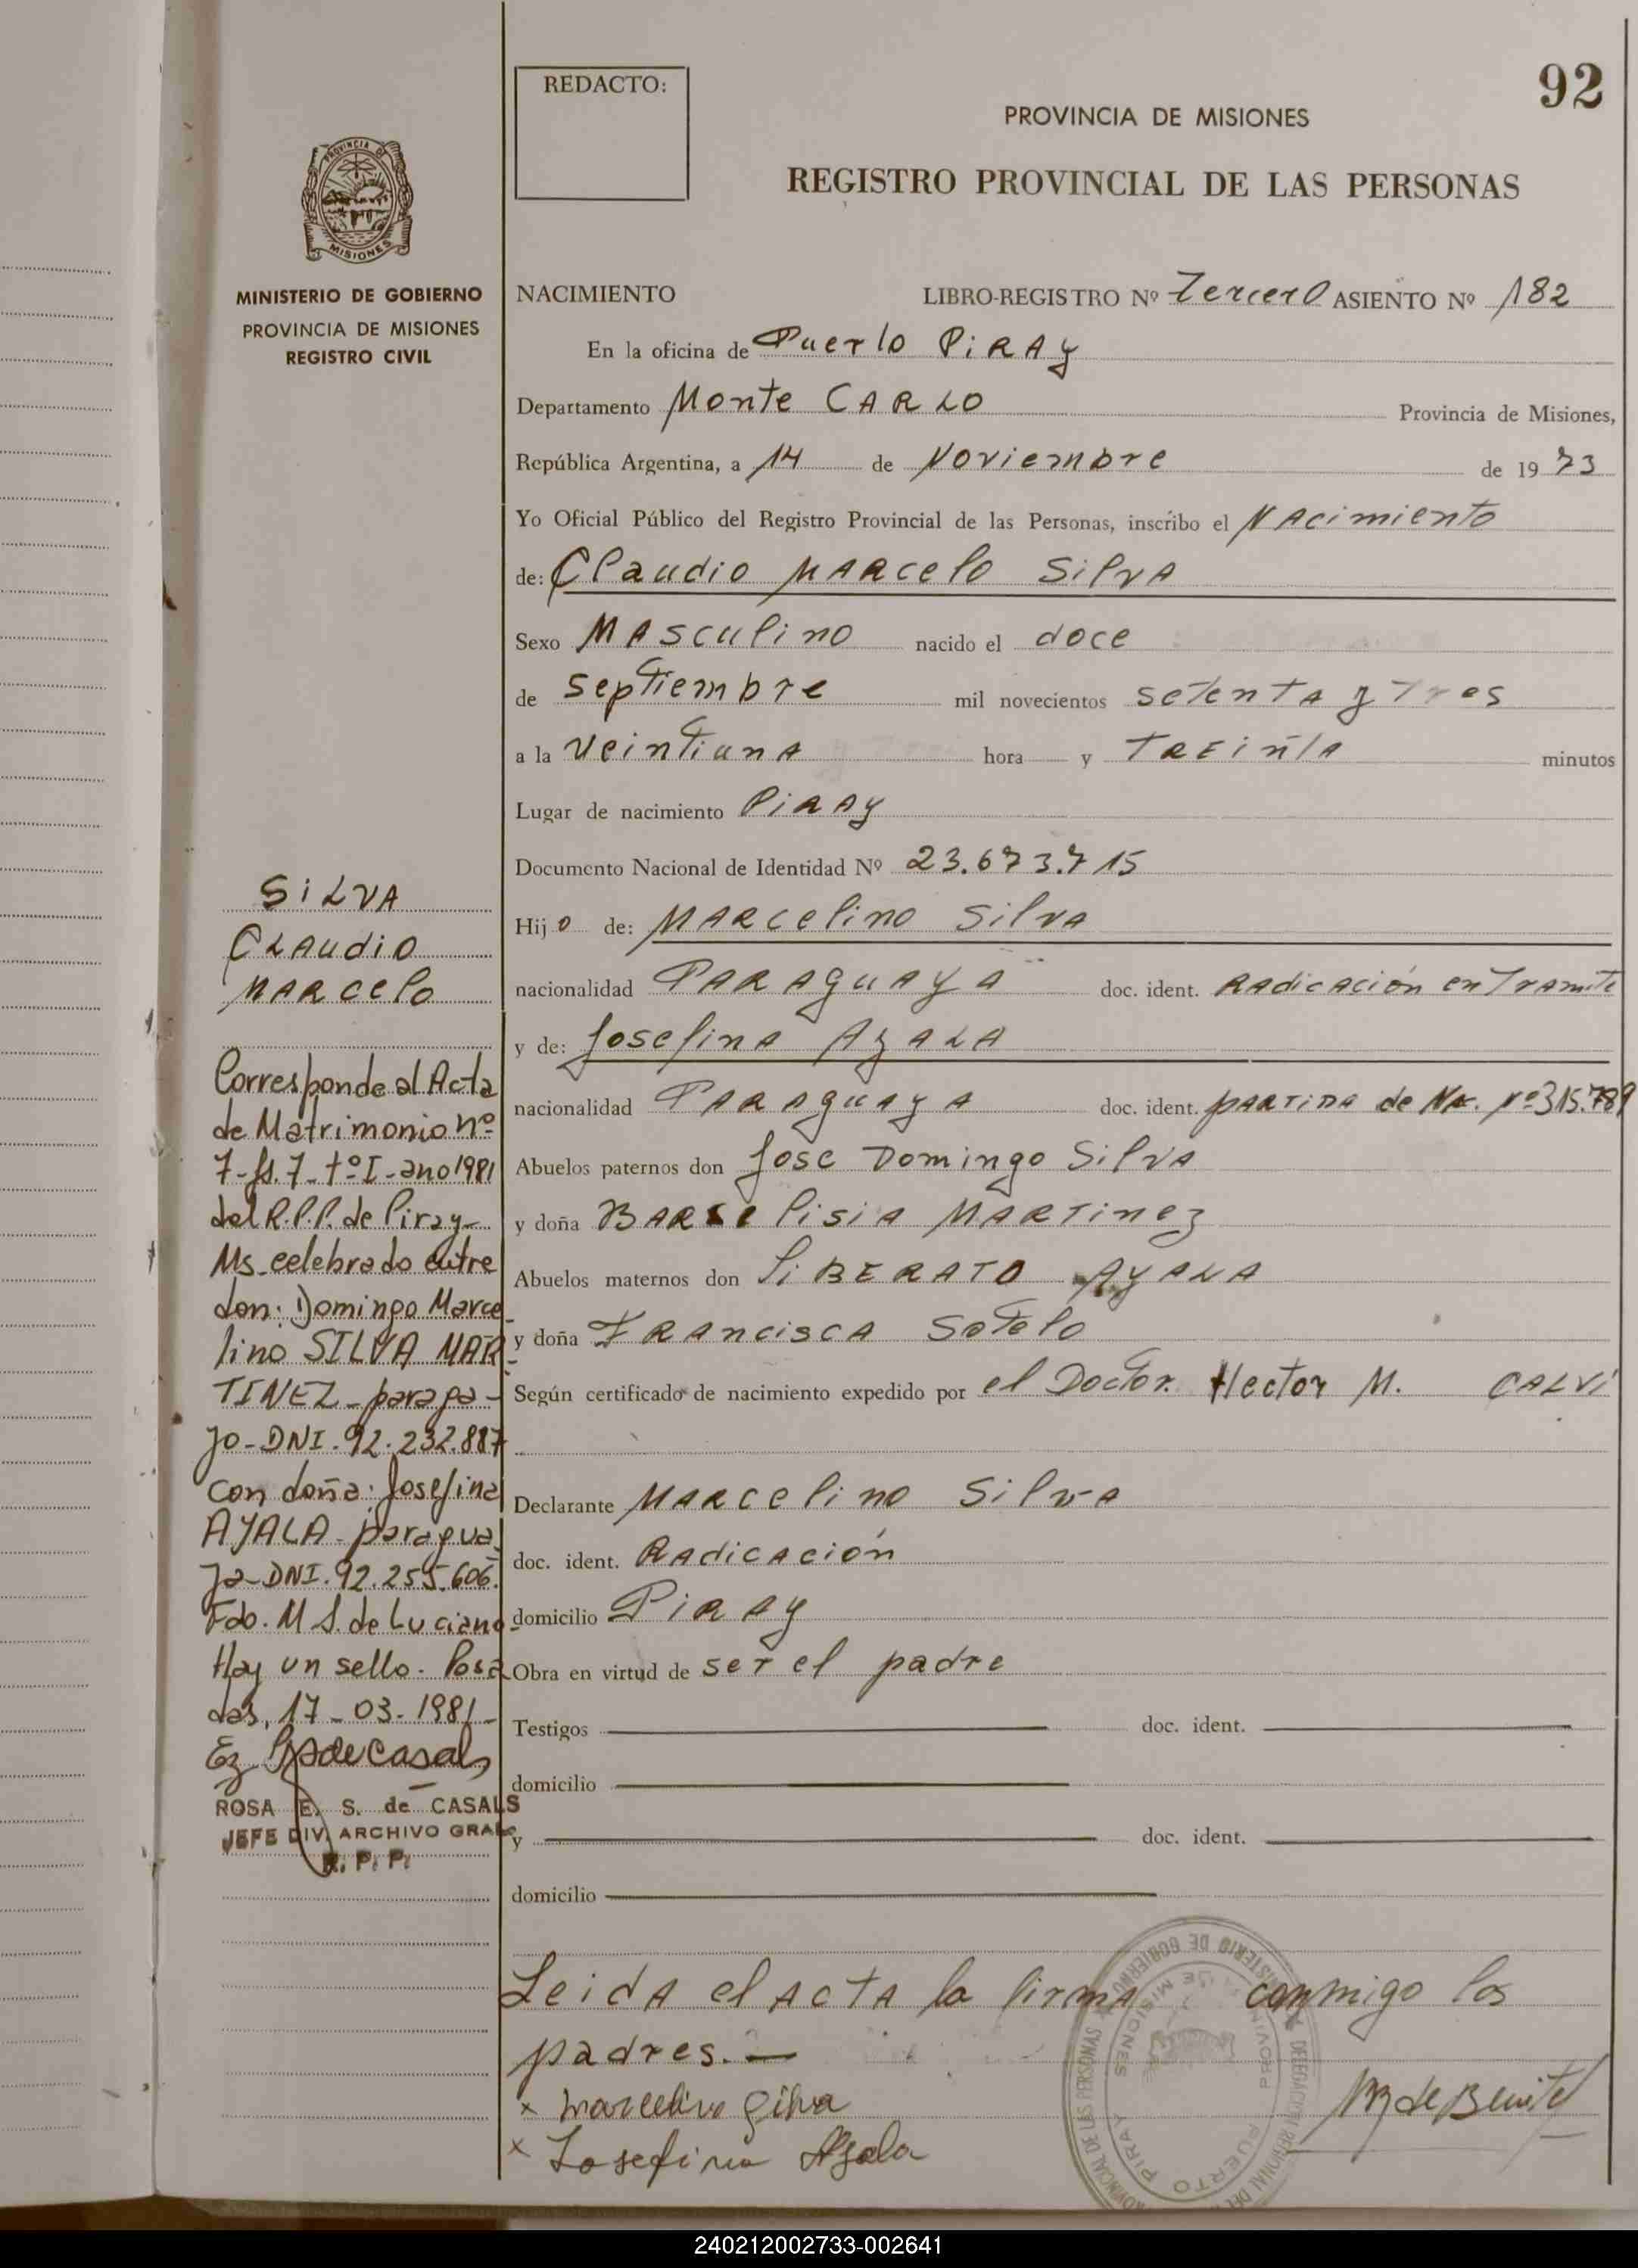 92
REDACTO:
PROVINCIA DE MISIONES
REGISTRO PROVINCIAL DE LAS PERSONAS
PROVINCIA DE
MISIONES
MINISTERIO DE GOBIERNO
PROVINCIA DE MISIONES
REGISTRO CIVIL
NACIMIENTO LIBRO-REGISTRO Nº Tercero ASIENTO Nº 182
En la oficina de Puerto PiRAy
Departamento Monte CARLO Provincia de Misiones,
República Argentina, a 14 de Noviembre de 1973
Yo Oficial Público del Registro Provincial de las Personas, inscribo el NAcimiento
de: Claudio MARcelo SilvA
Sexo MAsculino nacido el doce
de septiembre mil novecientos setentA y Tres
a la veintiunA hora y TREintA minutos
Lugar de nacimiento PiRAy
Documento Nacional de Identidad Nº 23.673.715
Hijo de: MARcelino SilvA
nacionalidad PARAguAyA doc. ident. RAdicAción en TrAmite
y de: JosefinA AyALA
nacionalidad PARAguAyA doc. ident. pARTiDA de Na. Nº 315.789
Abuelos paternos don Jose Domingo SilvA
y doña BARselisiA MARTinez
Abuelos maternos don LiBERATO AyALA
y doña FRAnciscA Sotelo
Según certificado de nacimiento expedido por el Doctor. Hector M. CALVi
Declarante MARcelino SilvA
doc. ident. RAdicAción
domicilio PiRAy
Obra en virtud de ser el padre
Testigos doc. ident.
domicilio
y doc. ident.
domicilio
LeidA el ActA la firmA conmigo los
padres.—
x Marcelino Silva
x Josefina Ayala
M de Benitez
SiLVA
CLAudiO
MARcelo
Corresponde al Acta
de Matrimonio nº
7-fs.7-tº I-ano 1981
del R.P.P. de Piray-
Ms. celebrado entre
don: Domingo Marce
lino SILVA MAR-
TINEZ-paraga-
yo-DNI.92.232.887
con doña: Josefina
AYALA-paragua
ya-DNI.92.255.606.
Fdo. M S. de Luciano
Hay un sello. Posa
das, 17-03-1981-
ROSA E. S. de CASALS
JEFE DIV. ARCHIVO GRAL.
R. P. P.
MINISTERIO DE GOBIERNO
PROVINCIA DE MISIONES
PUERTO PIRAY
240212002733-002641